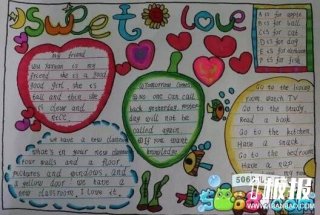 Supet love
A is for apple
B is for ball
C is for cat
D is for dog
E is for
F is for fish
My friend
is my
friend she is a good
good girl she is
tall and thin she
is clever and
nice
Tomorrow comes
No one can call
back yesterday
day will not be
called again
If you want
knowledge
Go to the living
room watch TV
Go to the study
Read a book
Go to the kitchen
Have a snack
Go to the bedroom
Have a nap
We have a new classroom
what's in your new classroom
four walls and a floor,
pictures and windows, and
a yellow door we have a
new classroom, I love it